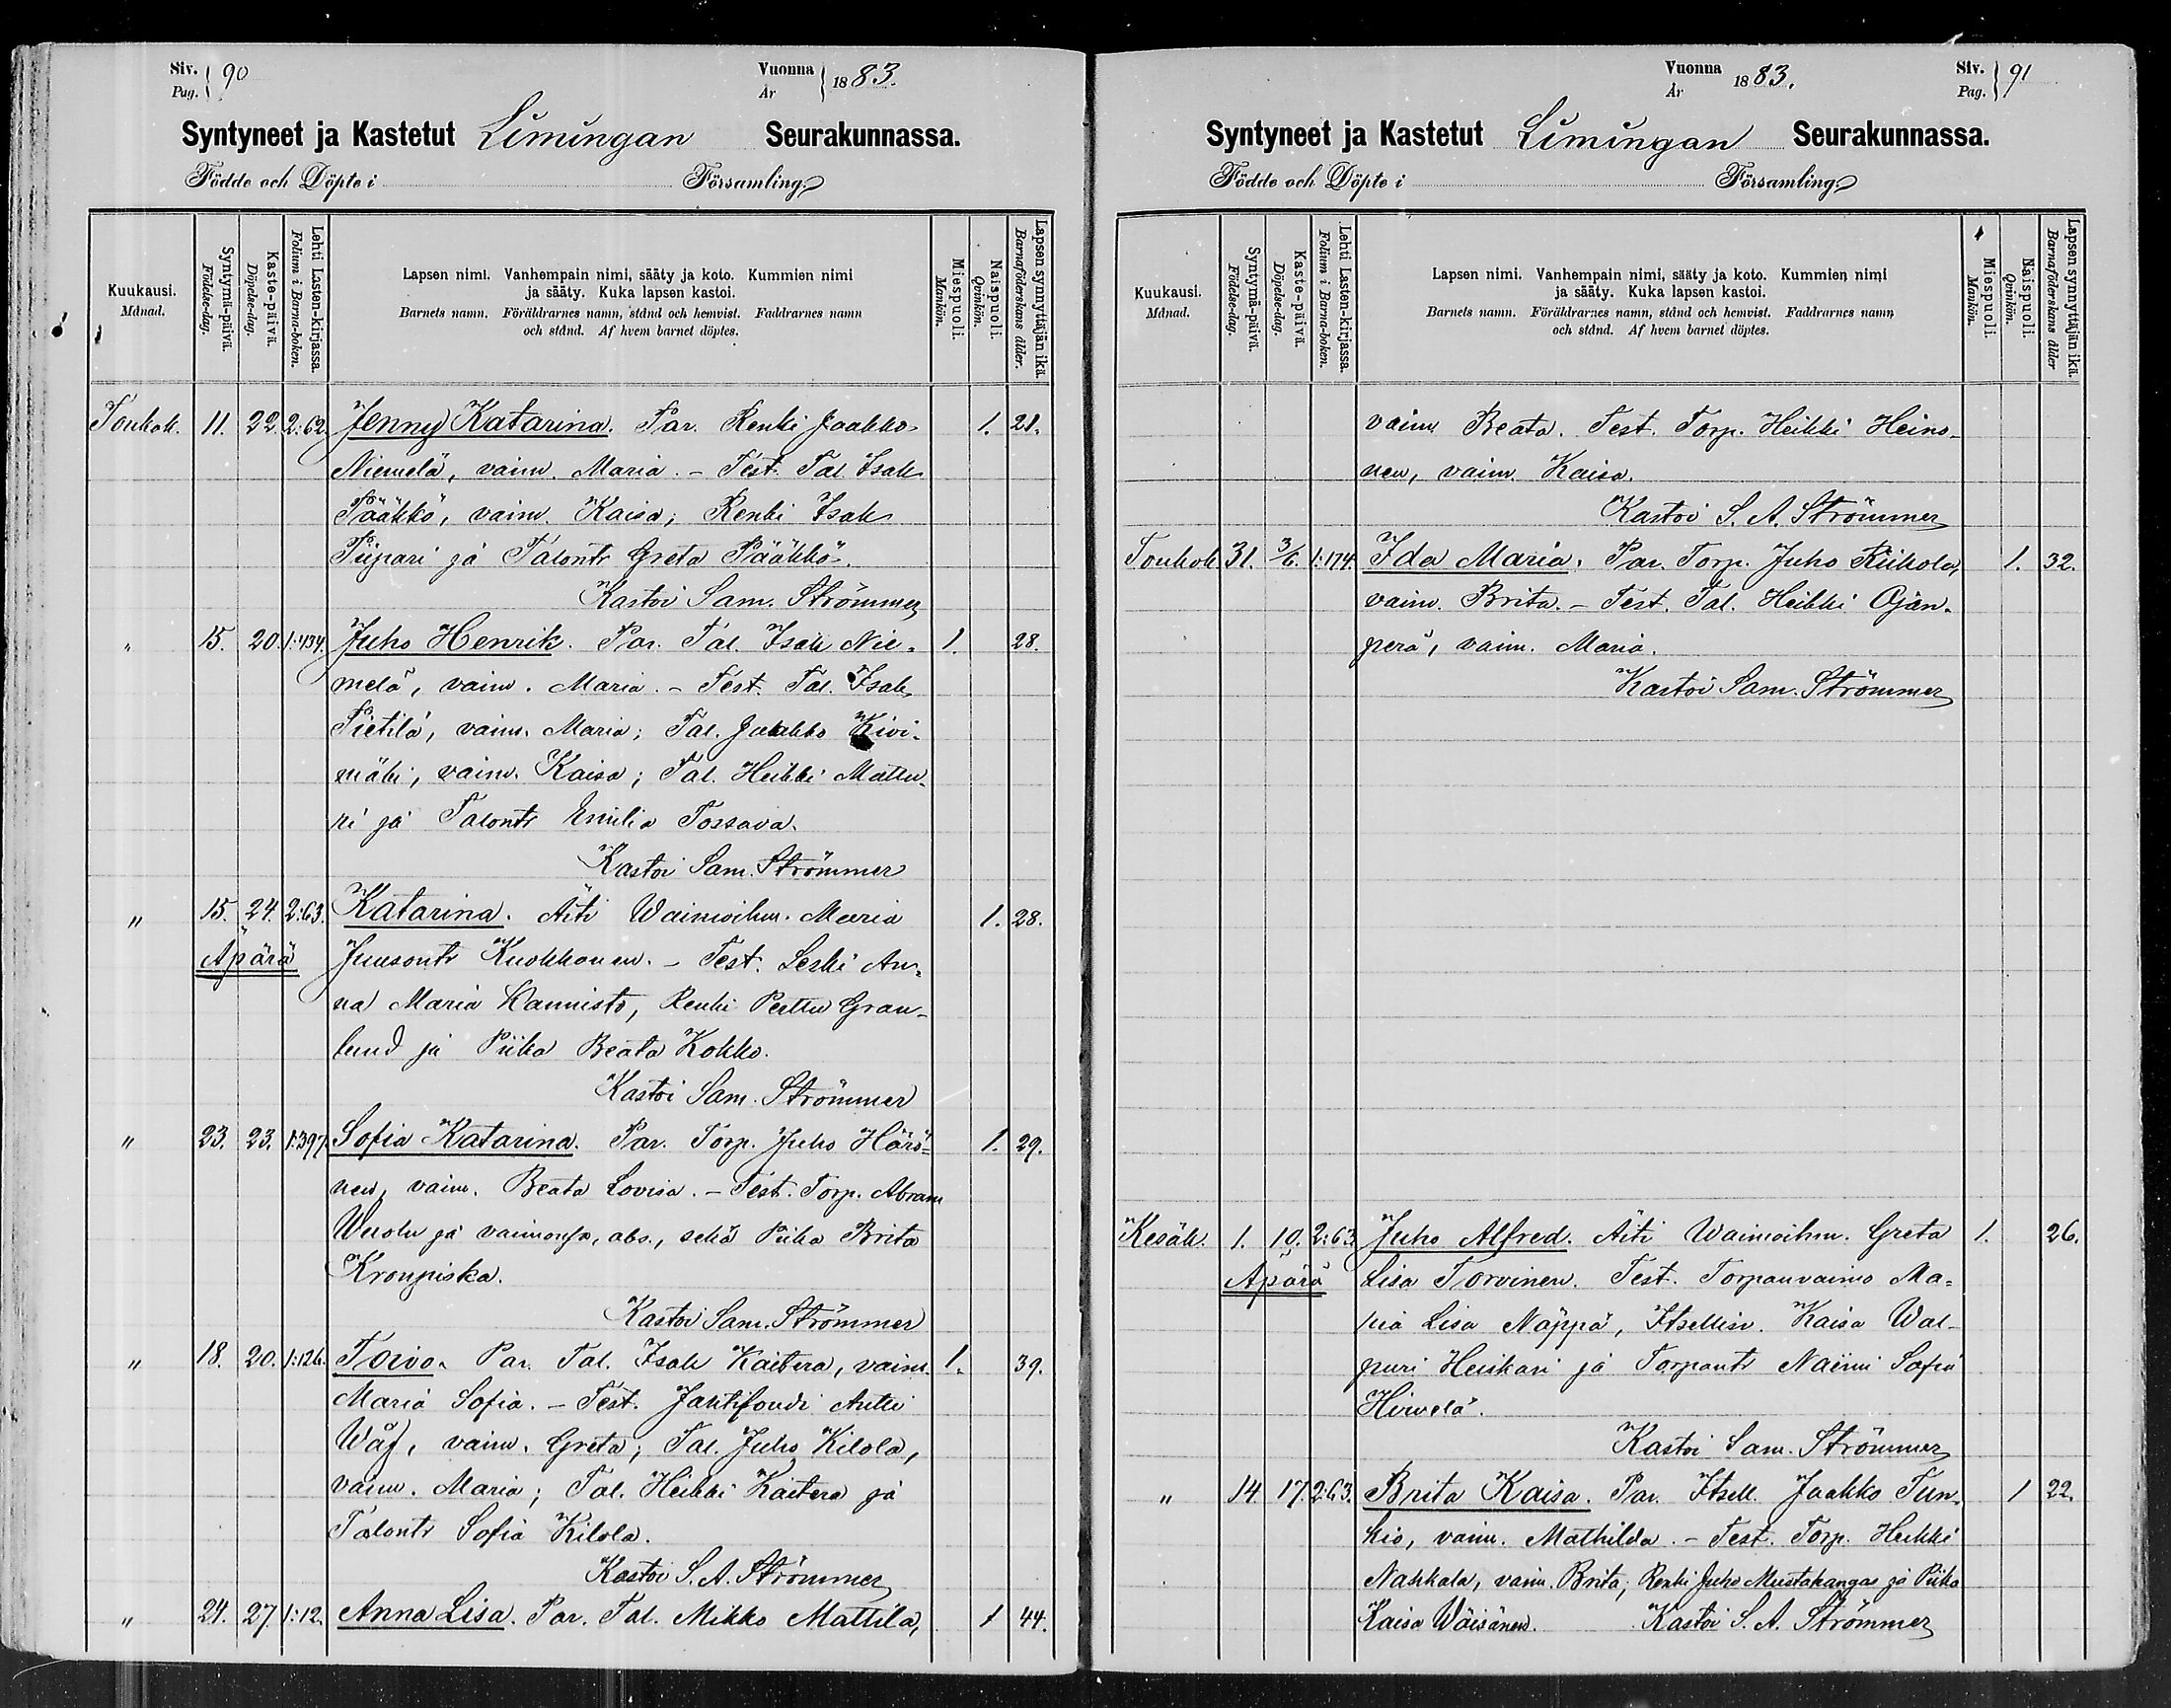 Siv. Pag. 90
Vuonna År 1883.
Syntyneet ja Kastetut Limingan Seurakunnassa.
Födde och Döpte i Församling.
Kuukausi. Månad.
Syntymä-päivä. Födelse-dag.
Kaste-päivä. Döpelse-dag.
Lehti Lasten-kirjassa. Folium i Barna-boken.
Lapsen nimi. Vanhempain nimi, sääty ja koto. Kummien nimi
ja sääty. Kuka lapsen kastoi.
Barnets namn. Föräldrarnes namn, stånd och hemvist. Faddrarnes namn
och stånd. Af hvem barnet döptes.
Miespuoli. Mankön.
Naispuoli. Qvinkön.
Lapsen synnyttäjän ikä. Barnaföderskans ålder.
Toukok. 11. 22. 2:62. Jenny Katarina. Par. Renki Jaakko 1. 21.
Niemelä, vaim. Maria. – Test. Tal. Isak
Pääkkö, vaim. Kaisa; Renki Isak
Piipari ja Talontr Greta Pääkkö.
Kastoi Sam. Strömmer
" 15. 20. 1:434. Juho Henrik. Par. Tal. Isak Nie- 1. 28.
melä, vaim. Maria. – Test. Tal. Isak
Pietilä, vaim. Maria; Tal. Jaakko Kivi-
mäki, vaim. Kaisa; Tal. Heikki Mattu-
ri ja Talontr Emilia Tossava.
Kastoi Sam. Strömmer
" 15. 24. 2:63. Katarina. Äiti Waimoihm. Maria 1. 28.
Äpärä Juusontr Kuokkonen. – Test. Leski An-
na Maria Kannisto, Renki Perttu Gran-
lund ja Piika Beata Kokko.
Kastoi Sam. Strömmer
" 23. 23. 1:397. Sofia Katarina. Par. Torp. Juho Härö- 1. 29.
nen, vaim. Beata Lovisa. – Test. Torp. Abram
Wuolu ja vaimonsa, abs., sekä Piika Brita
Kronpiska.
Kastoi Sam. Strömmer
" 18. 20. 1:126. Toivo. Par. Tal. Isak Kaitera, vaim. 1. 39.
Maria Sofia. – Test. Jahtifoudi Antti
Wåg, vaim. Greta; Tal. Juho Kilola,
vaim. Maria; Tal. Heikki Kaitera ja
Talontr Sofia Kilola.
Kastoi S. A. Strömmer
" 24. 27. 1:12. Anna Lisa. Par. Tal. Mikko Mattila, 1 44.
Vuonna År 1883.
Siv. Pag. 91
Syntyneet ja Kastetut Limingan Seurakunnassa.
Födde och Döpte i Församling.
Kuukausi. Månad.
Syntymä-päivä. Födelse-dag.
Kaste-päivä. Döpelse-dag.
Lehti Lasten-kirjassa. Folium i Barna-boken.
Lapsen nimi. Vanhempain nimi, sääty ja koto. Kummien nimi
ja sääty. Kuka lapsen kastoi.
Barnets namn. Föräldrarnes namn, stånd och hemvist. Faddrarnes namn
och stånd. Af hvem barnet döptes.
Miespuoli. Mankön.
Naispuoli. Qvinkön.
Lapsen synnyttäjän ikä. Barnaföderskans ålder
vaim. Beata. Test. Torp. Heikki Heino-
nen, vaim. Kaisa.
Kastoi S. A. Strömmer
Toukok 31. 3/6. 1:174. Ida Maria. Par. Torp. Juho Riikola, 1. 32.
vaim. Brita. – Test. Tal. Heikki Ojan-
perä, vaim. Maria.
Kastoi Sam. Strömmer
Kesäk. 1. 10. 2:63. Juho Alfred. Äiti Waimoihm. Greta 1. 26.
Äpärä Lisa Torvinen. Test. Torpanvaimo Ma-
ria Lisa Näppä, Itsellisv. Kaisa Wal-
puri Huikari ja Torpantr Naimi Sofia
Hirvelä.
Kastoi Sam. Strömmer
" 14 17. 2:63. Brita Kaisa. Par. Itsell. Jaakko Tun- 1 22.
kio, vaim. Mathilda. – Test. Torp. Heikki
Nahkala, vaim. Brita; Renki Juho Mustakangas ja Piika
Kaisa Wäisänen. Kastoi S. A. Strömmer